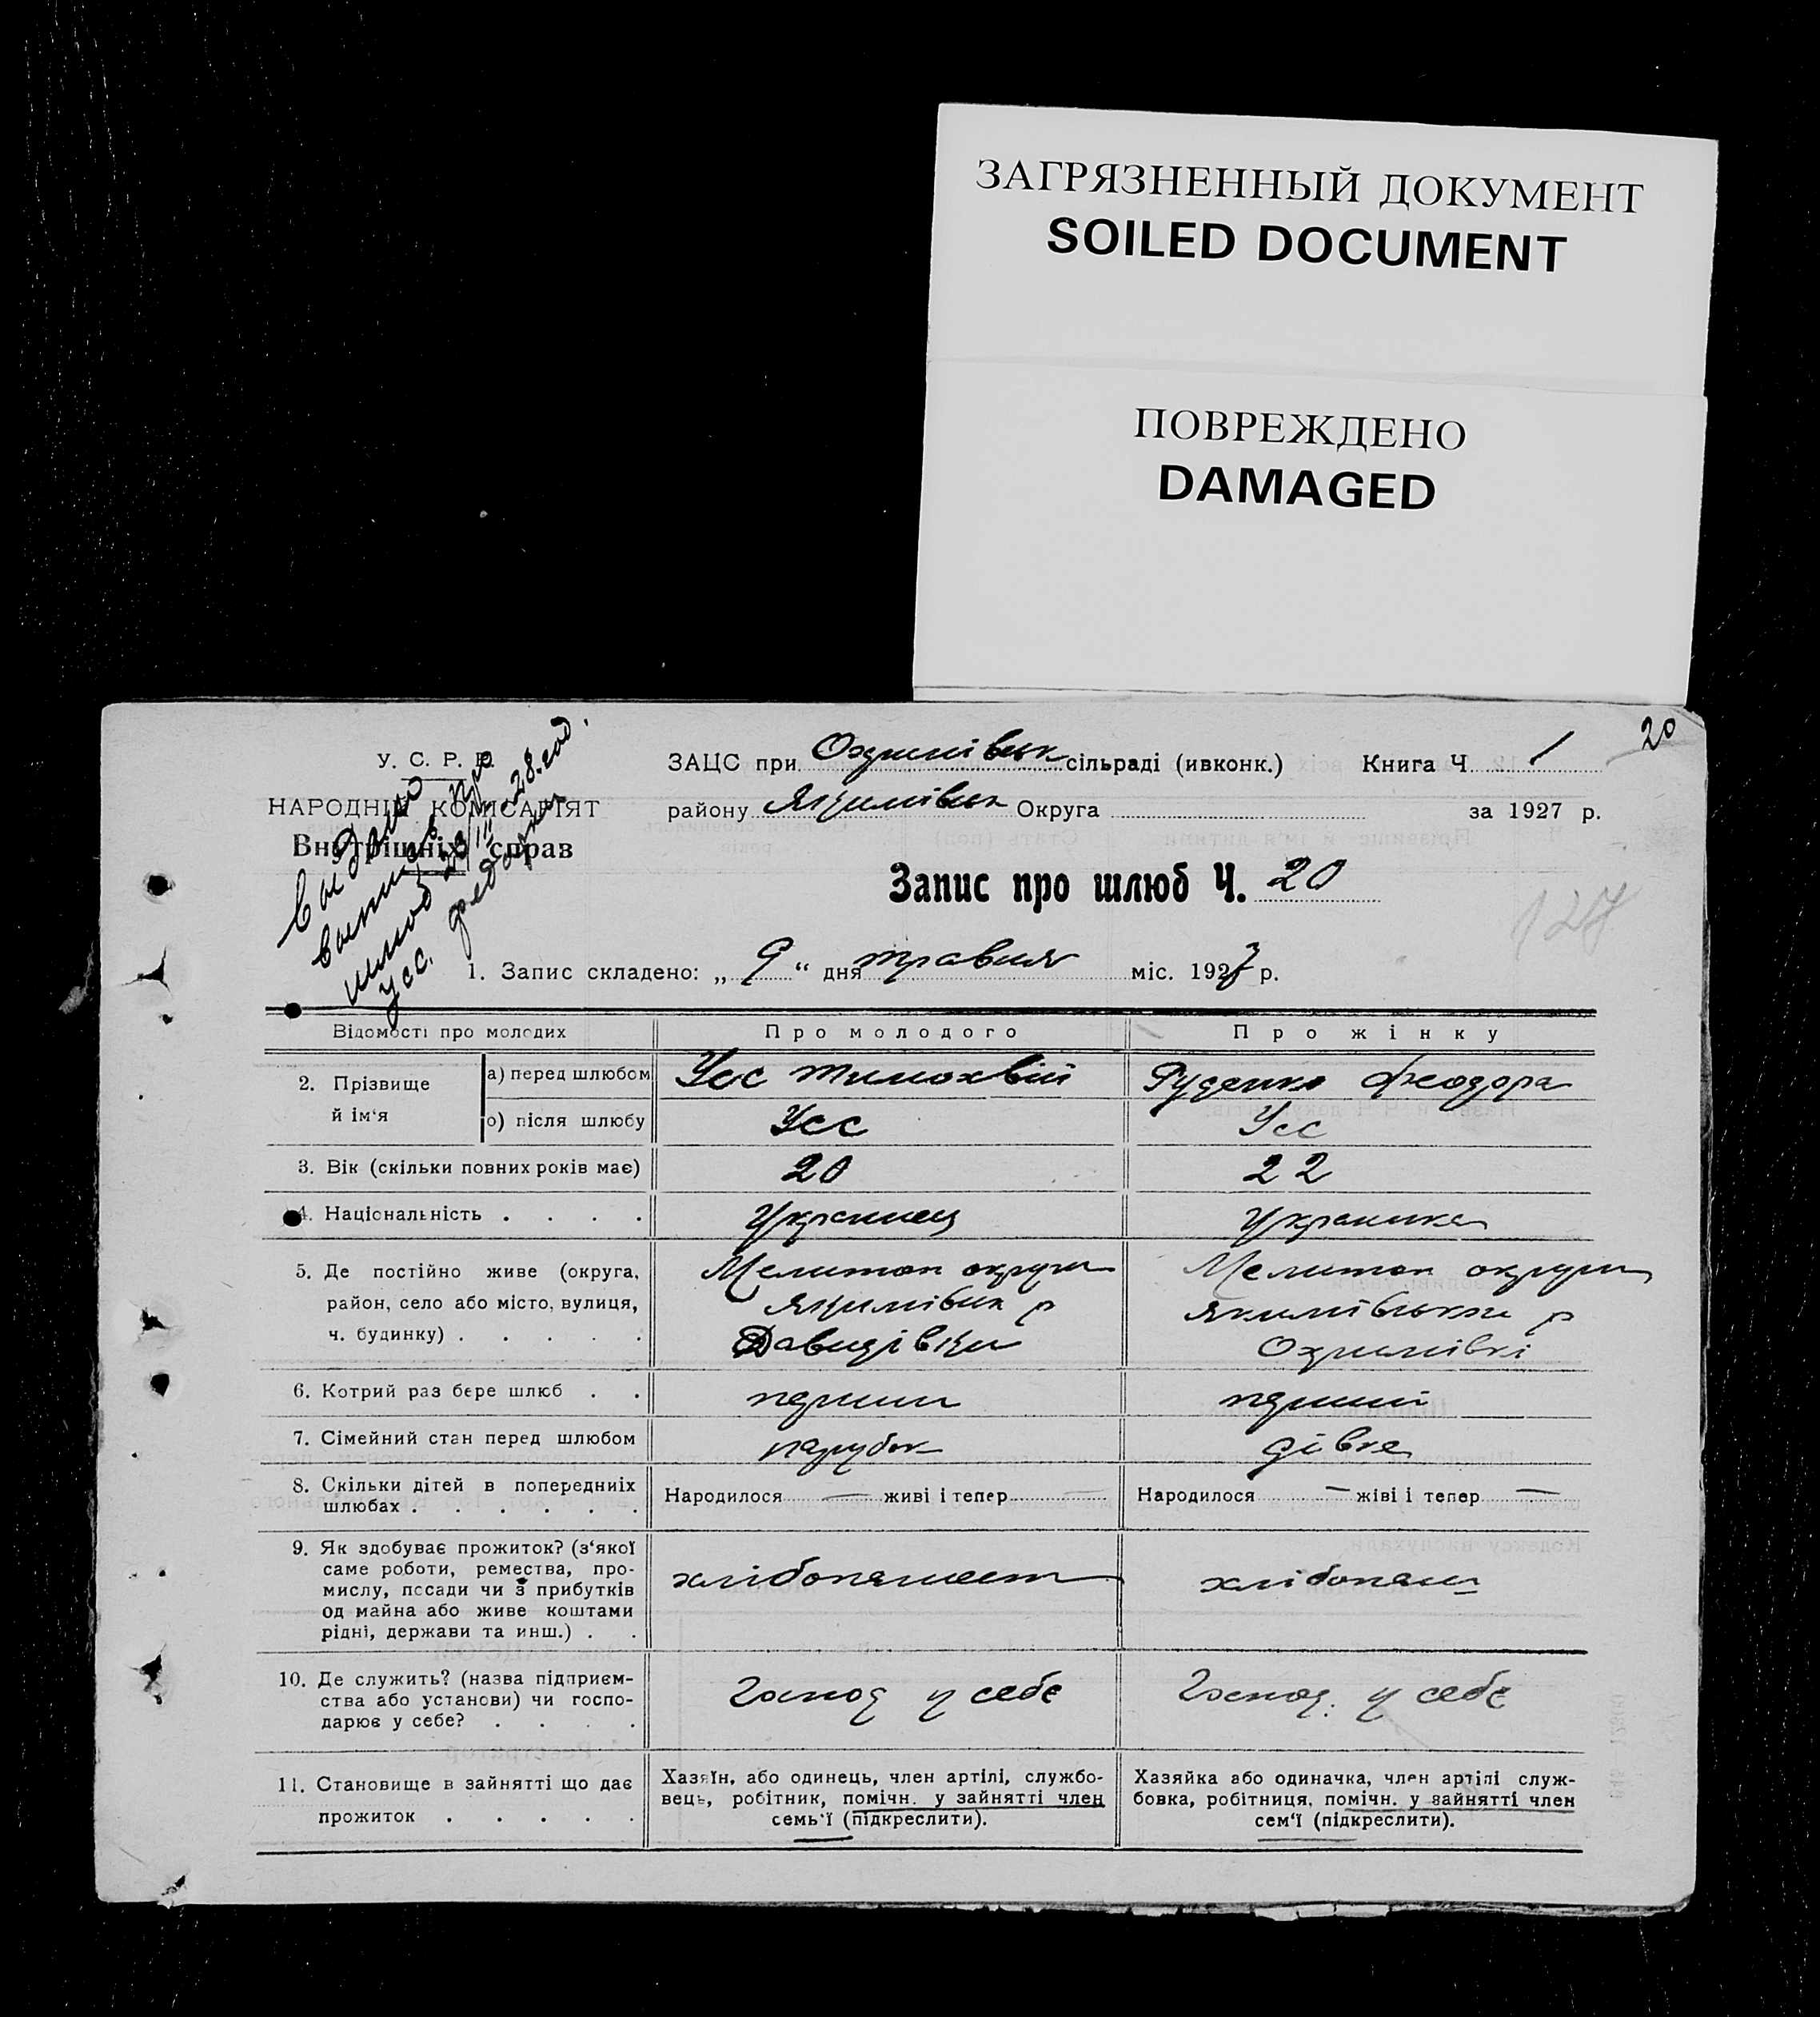 ЗАГРЯЗНЕННЫЙ ДОКУМЕНТ
SOILED DOCUMENT
ПОВРЕЖДЕНО
DAMAGED
20
У. С. Р. Р.
НАРОДНІЙ КОМІСАРІЯТ
Внутрішніх справ
Выдано
выпись про
шлюб 23/III-28.год.
Усс.
ЗАЦС при Охримівськ сільраді (ивконк.) Книга Ч 1
району Якимівськ Округа за 1927 р.
Запис про шлюб Ч. 20
127
1. Запис складено: „ 9 “ дня травня міс. 1927 р.
Відомості про молодих Про молодого Про жінку
2. Прізвище й ім‘я а) перед шлюбом Усс Тимохвій Руденко Феодора
о) після шлюбу Усс Усс
3. Вік (скільки повних років має) 20 22
4. Національність . . . . Украинец Украинка
5. Де постійно живе (округа, Мелитоп округи Мелитоп округи
район, село або місто, вулиця, Якимівськ р Якимівськи р
ч. будинку) . . . . . Давидівки Охримівкі
6. Котрий раз бере шлюб . . перший перший
7. Сімейний стан перед шлюбом парубок дівка
8. Скільки дітей в попередниіх
шлюбах . . . . . . Народилося — живі і тепер — Народилося — жіві і тепер —
9. Як здобуває прожиток? (з‘якої
саме роботи, ремества, про-
мислу, посади чи з прибутків хлібопашест хлібопаш
од майна або живе коштами
рідні, держави та инш.) . .
10. Де служить? (назва підприєм-
ства або установи) чи госпо- Господ у себе Господ. у себе
дарює у себе? . . . .
11. Становище в зайнятті що дає
прожиток . . . . .
Хазяїн, або одинець, член артілі, службо-
вець, робітник, помічн. у зайнятті член
семь‘ї (підкреслити).
Хазяйка або одиначка, член артілі служ-
бовка, робітниця, помічн. у зайнятті член
сем‘ї (підкреслити).